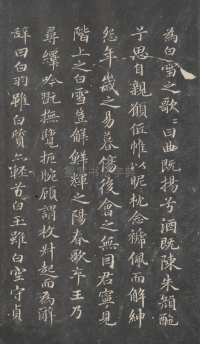 為白雪之歌歌曰曲既揚兮酒既陳朱顏酡
兮思自親願低帷以昵枕念褫佩而解紳
怨年歲之易暮傷後會之無因君寧見
階上之白雪豈鮮耀之陽春歌卒王乃
尋繹吟翫撫覽扼腕顧謂枚叔起而為亂
亂曰白羽雖白質以輕兮白玉雖白空守貞